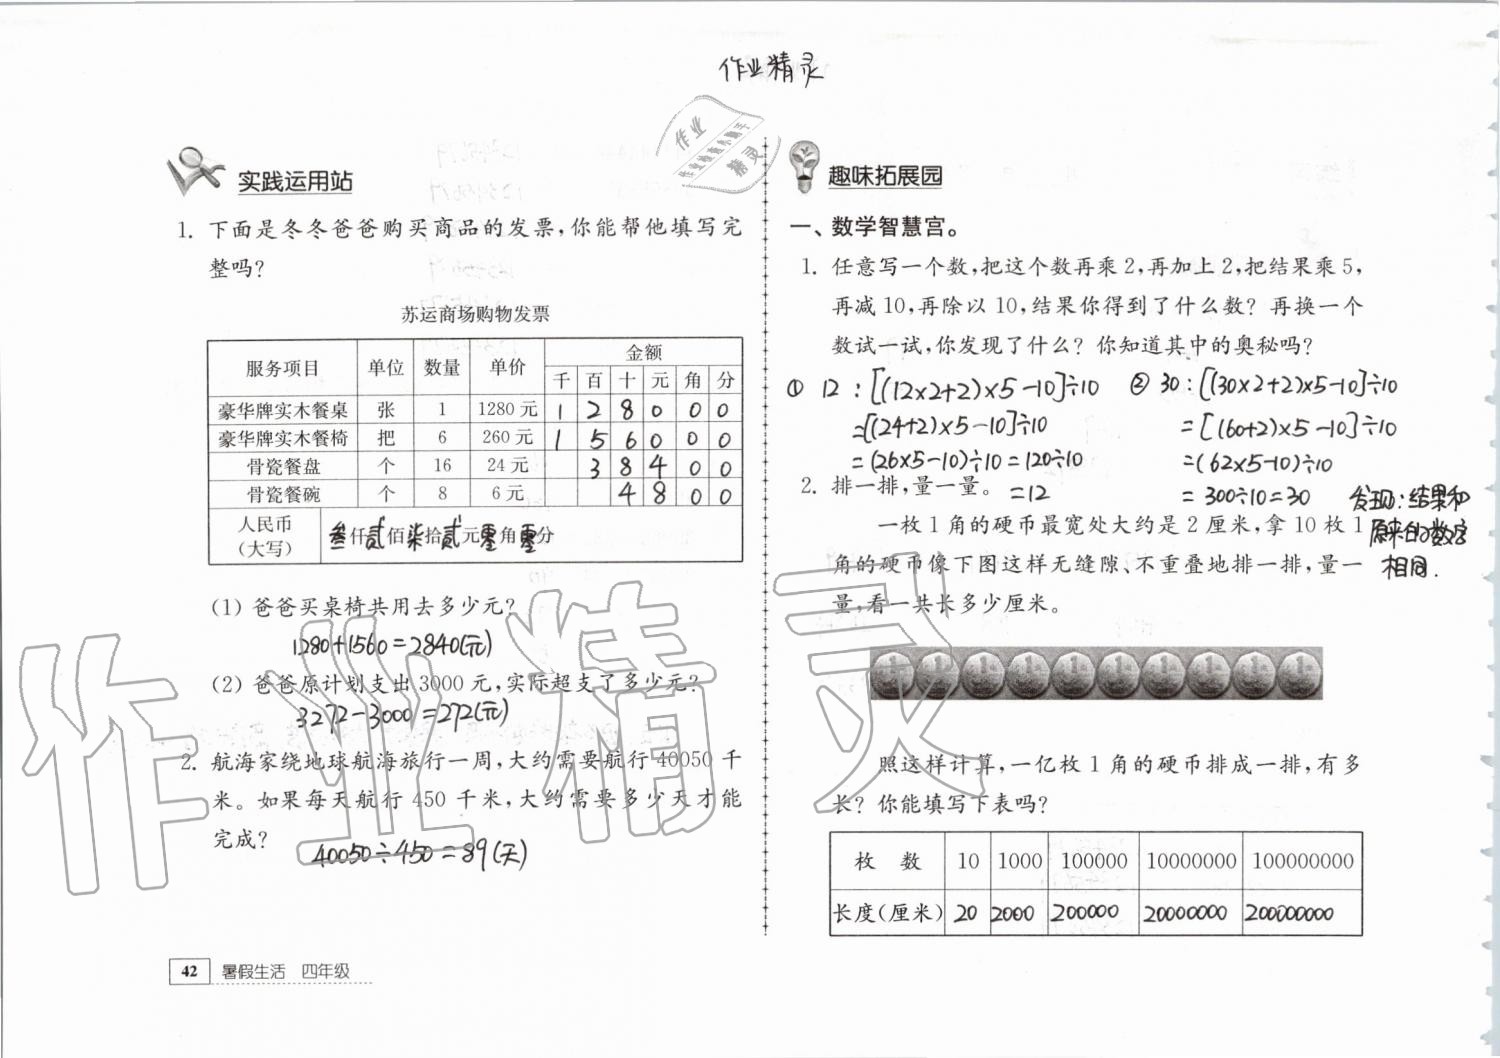 作业精灵
作业
作业检查小助手
精灵
实践运用站
1. 下面是冬冬爸爸购买商品的发票,你能帮他填写完
整吗?
苏运商场购物发票
服务项目 单位 数量 单价 金额
千 百 十 元 角 分
豪华牌实木餐桌 张 1 1280元 1 2 8 0 0 0
豪华牌实木餐椅 把 6 260元 1 5 6 0 0 0
骨瓷餐盘 个 16 24元 3 8 4 0 0
骨瓷餐碗 个 8 6元 4 8 0 0
人民币
(大写) 叁仟贰佰柒拾贰元零角零分
(1) 爸爸买桌椅共用去多少元?
1280+1560=2840(元)
(2) 爸爸原计划支出3000元,实际超支了多少元?
3272-3000=272(元)
2. 航海家绕地球航海旅行一周,大约需要航行40050千
米。如果每天航行450千米,大约需要多少天才能
完成?
40050÷450=89(天)
42 暑假生活 四年级
趣味拓展园
一、数学智慧宫。
1. 任意写一个数,把这个数再乘2,再加上2,把结果乘5,
再减10,再除以10,结果你得到了什么数? 再换一个
数试一试,你发现了什么? 你知道其中的奥秘吗?
① 12:[(12×2+2)×5-10]÷10 ② 30:[(30×2+2)×5-10]÷10
=[(24+2)×5-10]÷10 =[(60+2)×5-10]÷10
=(26×5-10)÷10=120÷10 =(62×5-10)÷10
=12 =300÷10=30
发现:结果和
原来的数字
相同.
2. 排一排,量一量。
一枚1角的硬币最宽处大约是2厘米,拿10枚1
角的硬币像下图这样无缝隙、不重叠地排一排,量一
量,看一共长多少厘米。
1 1 1 1 1 1 1 1 1 1
照这样计算,一亿枚1角的硬币排成一排,有多
长? 你能填写下表吗?
枚 数 10 1000 100000 10000000 100000000
长度(厘米) 20 2000 200000 20000000 200000000
作业精灵